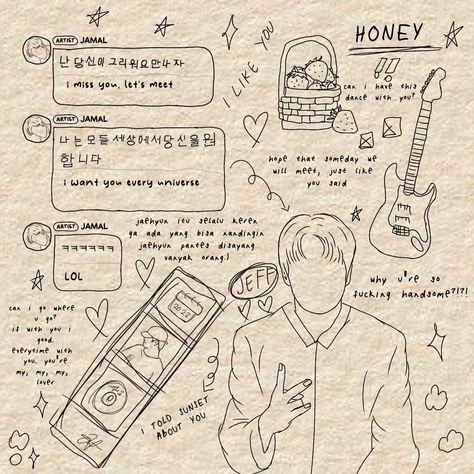 HONEY
ARTIST JAMAL
난 당신이 그리워요 만나자
i miss you, let's meet
I LIKE YOU
can i have this
dance with you?
ARTIST JAMAL
나는 모든 세상에서 당신을 원
합니다
i want you every universe
hope that someday we
will meet, just like
you said
ARTIST JAMAL
ㅋㅋㅋㅋㅋㅋ
LOL
jaehyun itu selalu keren
ga ada yang bisa nandingin
jaehyun pantes disayang
vanyak orang:)
JEFF
why u're so
fucking handsome?!?!
can i go where
u go?
is with you i
good.
everytime with
you. you're
my, my, my,
lover
I TOLD SUNSET
ABOUT YOU